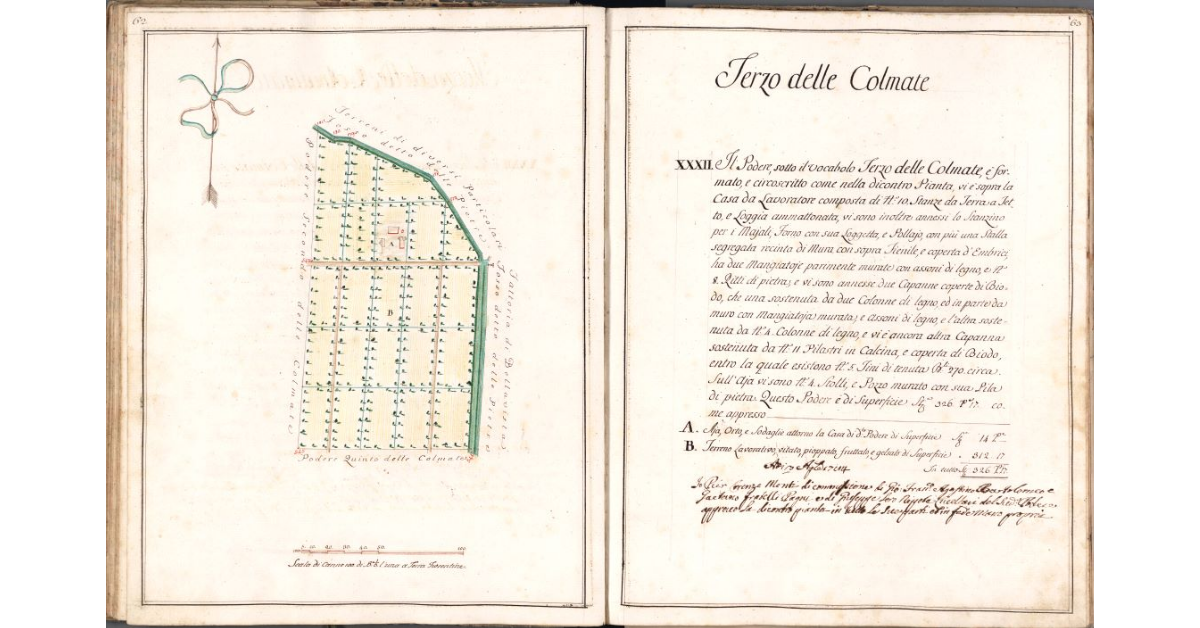 62
Terreni di diversi Particolari
Fosso detto delle Pietre
Podere Secondo delle Colmate
Fosso detto delle Pietre
Fattoria di Bellavista
A
B
Podere Quinto delle Colmate
100
Scala di Canne 100 di Bª. l'una a Terra Fiorentina
63
Terzo delle Colmate
XXXII. Il Podere, sotto il Vocabolo Terzo delle Colmate, è for-
mato, e circoscritto come nella dicontro Pianta, vi è sopra la
Casa da Lavoratore composta di Nº. 10. Stanze da Terra a Tet-
to, e Loggia ammattonata, vi sono inoltre annessi lo Stanzino
per i Majali, Forno con sua Loggetta, e Pollajo, con più una Stalla
segregata recinta di Mura con sopra Fienile, e coperta d'Embrici,
ha due Mangiatoje parimente murate con assoni di legno, e Nº.
8. Ritti di pietra; e vi sono annesse due Capanne coperte di Bio-
do, che una sostenuta da due Colonne di legno, ed in parte da
muro con Mangiatoja murata; e Assoni di legno, e l'altra soste-
nuta da Nº. 4. Colonne di legno, e vi è ancora altra Capanna
sostenuta da Nº. 11 Pilastri in Calcina, e coperta di Biodo,
entro la quale esistono Nº. 5. Tini di tenuta Bˡⁱ 270. circa.
Sull'Aja vi sono Nº. 4. Stolli, e Pozzo murato con sua Pila
di pietra. Questo Podere è di Superficie 326 17. co-
me appresso
A. Aja, Orto, e Sodaglia attorno la Casa di dº. Podere di Superficie 14
B. Terreno Lavorativo, vitato, pioppato, fruttato, e gelsato di Superficie 312 17
In tutto 326 17.
Io Pier Lorenzo Monti di commissione
Gaetano fratelli Pagni
appresso la dicontro pianta in tutte le sue parti mano propria